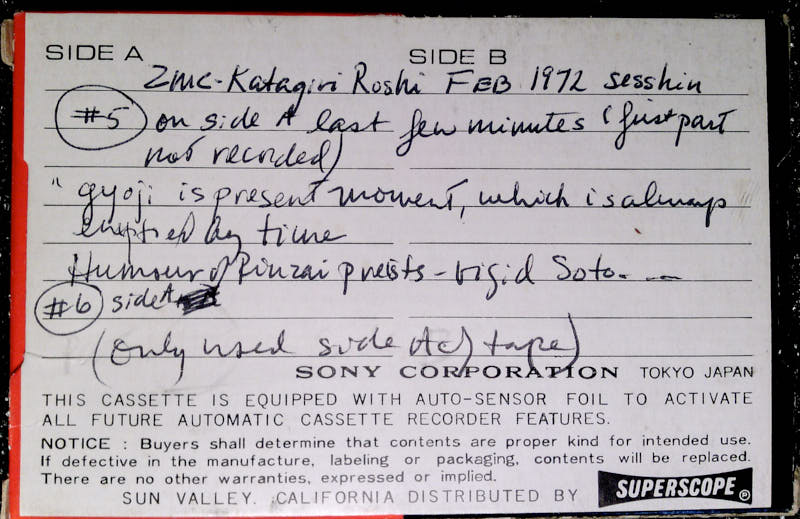 SIDE A SIDE B
ZMC-Katagiri Roshi FEB 1972 sesshin
#5 on side A last few minutes (first part
not recorded)
"gyoji is present moment, which is always"
emptied by time
Humour of Rinzai preists - rigid Soto. . —
#6 side A
(only used side A of tape)
SONY CORPORATION TOKYO JAPAN
THIS CASSETTE IS EQUIPPED WITH AUTO-SENSOR FOIL TO ACTIVATE
ALL FUTURE AUTOMATIC CASSETTE RECORDER FEATURES.
NOTICE : Buyers shall determine that contents are proper kind for intended use.
If defective in the manufacture, labeling or packaging, contents will be replaced.
There are no other warranties, expressed or implied.
SUN VALLEY. CALIFORNIA DISTRIBUTED BY SUPERSCOPE ®